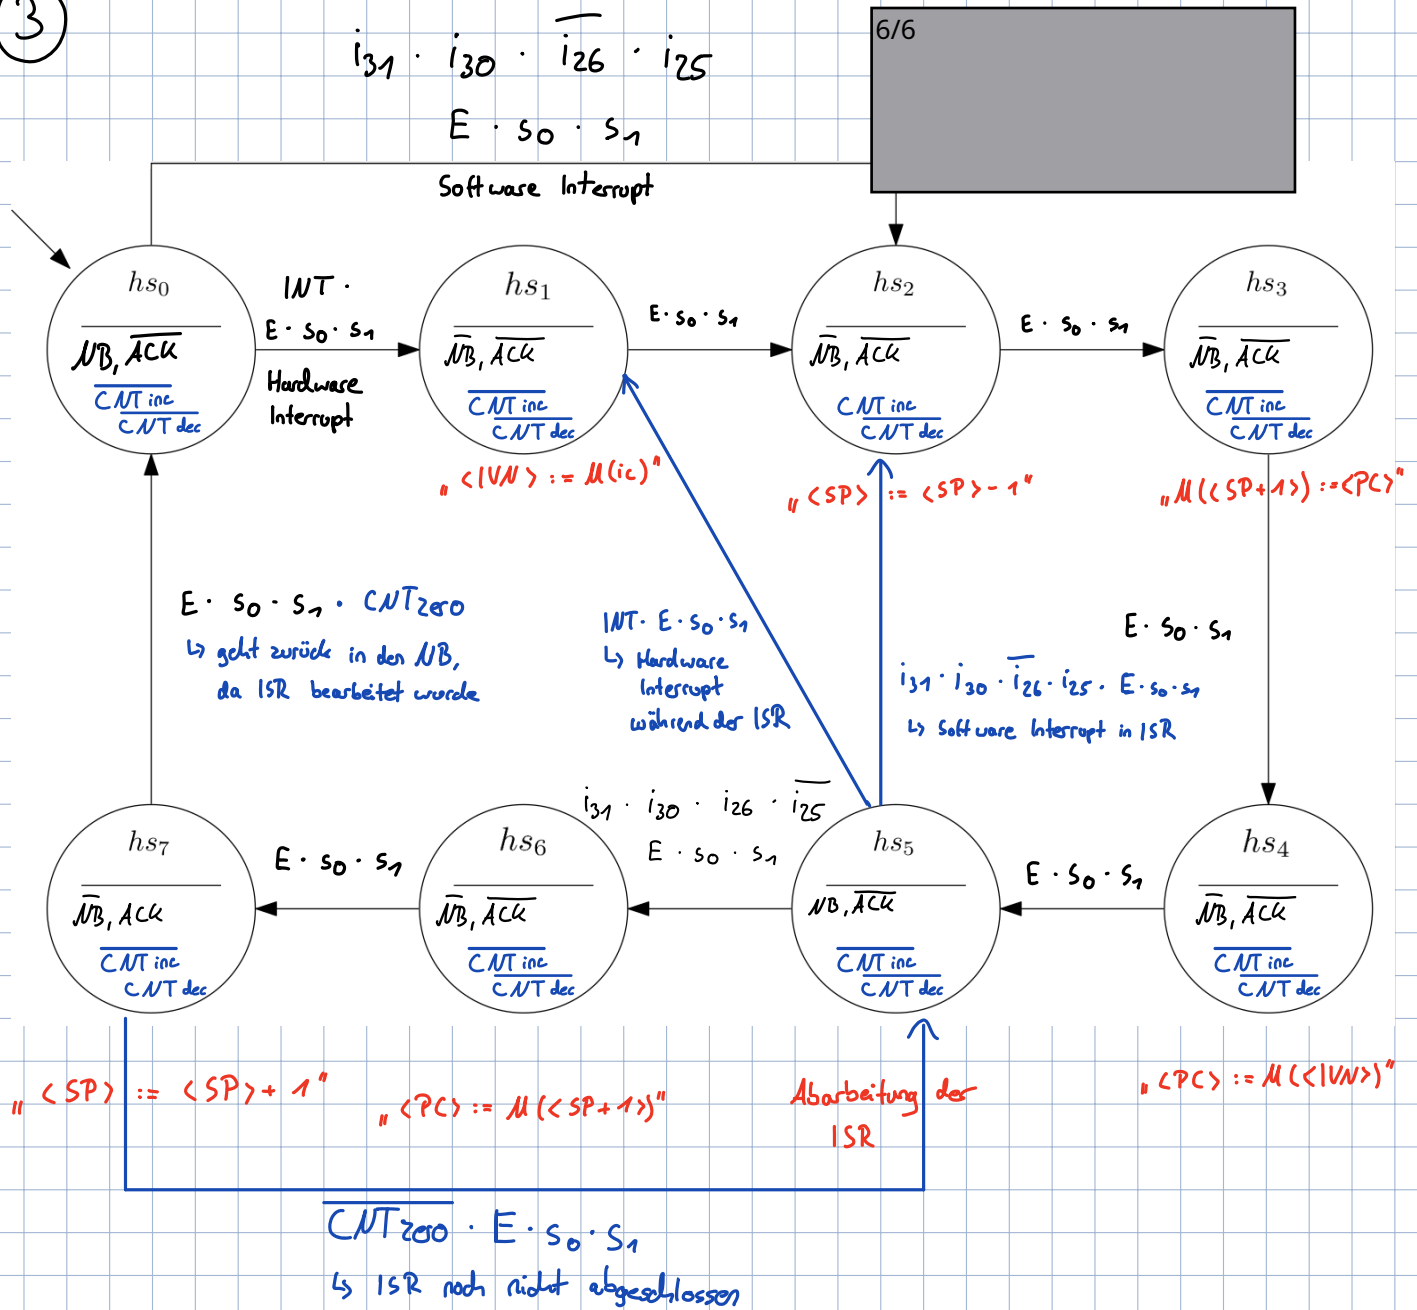 3
i31 · i30 · i̅2̅6̅ · i25
E · s0 · s1
Software Interrupt
6/6
hs0
NB, A̅C̅K̅
C̅N̅T̅ ̅i̅n̅c̅
C̅N̅T̅ ̅d̅e̅c̅
INT ·
E · s0 · s1
Hardware
Interrupt
hs1
N̅B̅, A̅C̅K̅
C̅N̅T̅ ̅i̅n̅c̅
C̅N̅T̅ ̅d̅e̅c̅
„<IVN> := M(ic)"
E · s0 · s1
hs2
N̅B̅, A̅C̅K̅
CNT inc
C̅N̅T̅ ̅d̅e̅c̅
„<SP> := <SP> - 1"
E · s0 · s1
hs3
N̅B̅, A̅C̅K̅
C̅N̅T̅ ̅i̅n̅c̅
C̅N̅T̅ ̅d̅e̅c̅
„M(<SP+1>) := <PC>"
E · s0 · s1 · CNTzero
↳ geht zurück in den NB,
da ISR bearbeitet wurde
INT · E · s0 · s1
↳ Hardware
Interrupt
während der ISR
i31 · i30 · i̅2̅6̅ · i25 · E · s0 · s1
↳ Software Interrupt in ISR
E · s0 · s1
hs7
N̅B̅, ACK
C̅N̅T̅ ̅i̅n̅c̅
CNT dec
E · s0 · s1
hs6
N̅B̅, A̅C̅K̅
C̅N̅T̅ ̅i̅n̅c̅
C̅N̅T̅ ̅d̅e̅c̅
i31 · i30 · i26 · i̅2̅5̅
E · s0 · s1
hs5
NB, A̅C̅K̅
C̅N̅T̅ ̅i̅n̅c̅
C̅N̅T̅ ̅d̅e̅c̅
E · s0 · s1
hs4
N̅B̅, A̅C̅K̅
C̅N̅T̅ ̅i̅n̅c̅
C̅N̅T̅ ̅d̅e̅c̅
„<SP> := <SP> + 1"
„<PC> := M(<SP+1>)"
Abarbeitung der
ISR
„<PC> := M(<IVN>)"
C̅N̅T̅z̅e̅r̅o̅ · E · s0 · s1
↳ ISR noch nicht abgeschlossen